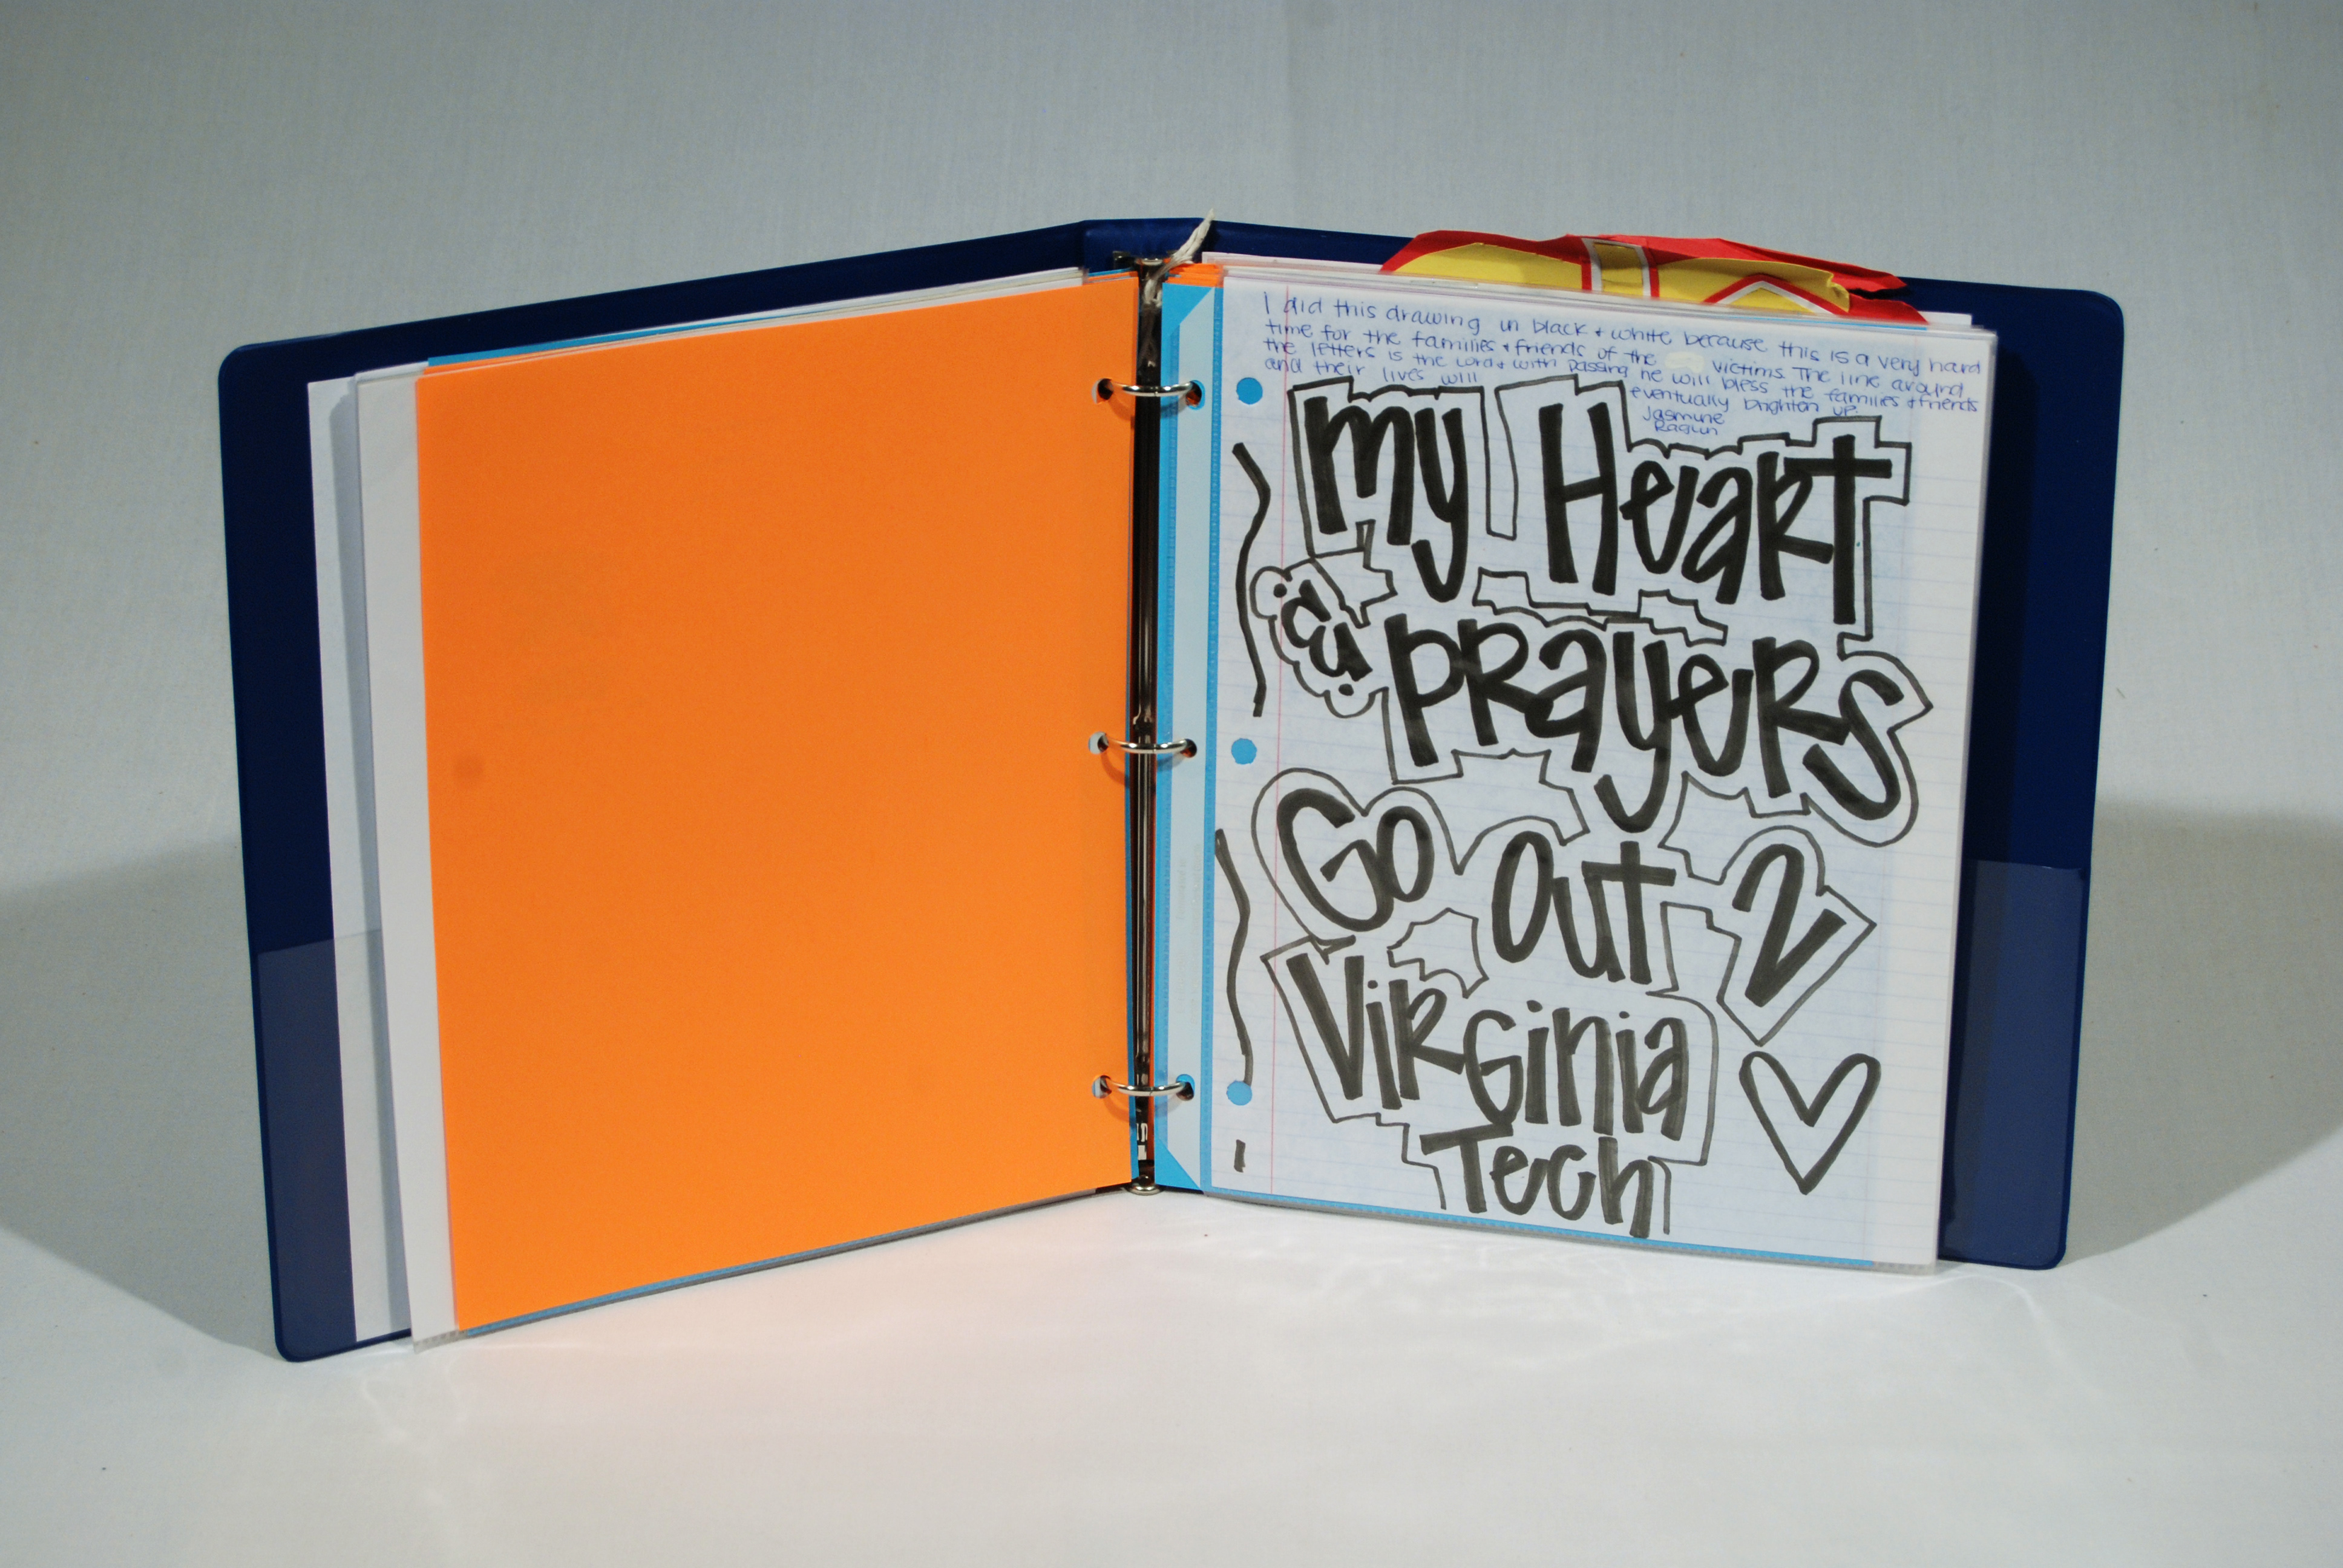 I did this drawing in black + white because this is a very hard
time for the families + friends of the victims. The line around
the letters is the lord + with passing he will bless the families + friends
and their lives will eventually brighten up.
Jasmine
my Heart
& PRayeRs
Go Out 2
ViRGinia
Tech